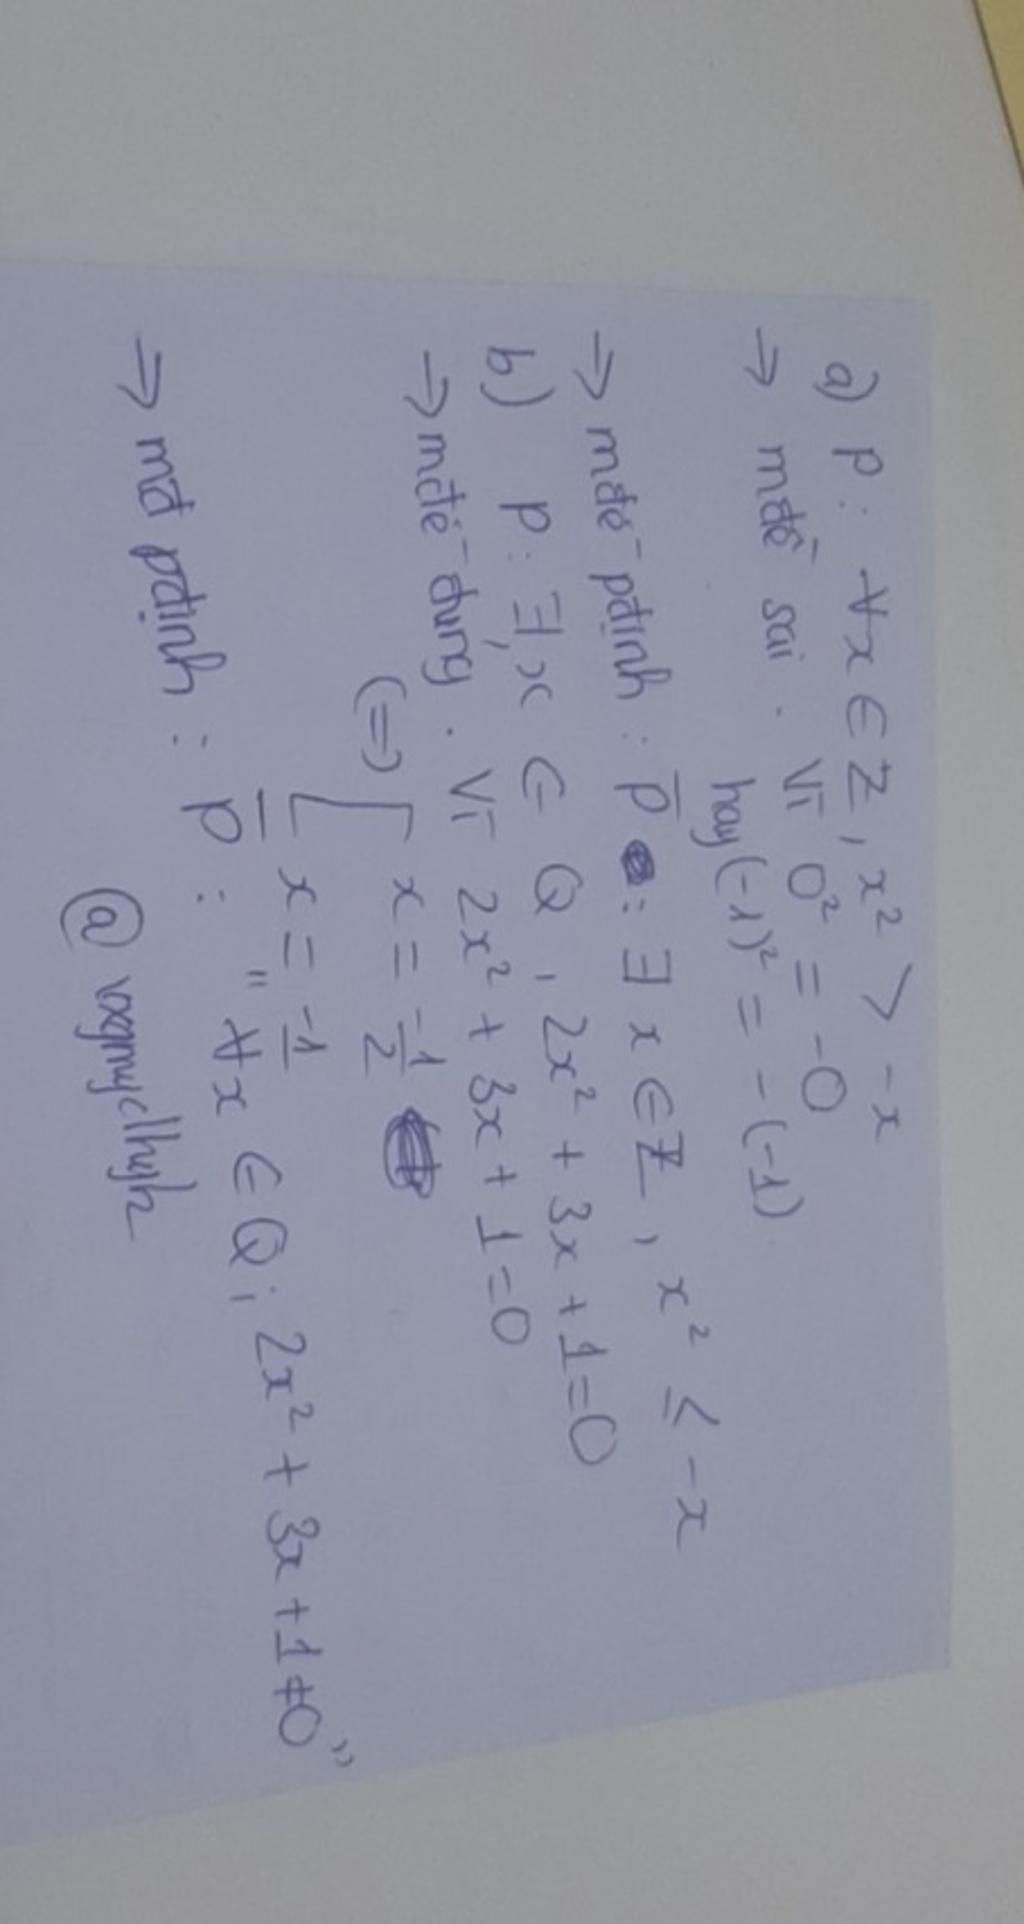 a) P: ∀x ∈ Z, x² > -x
→ mđề sai. Vì 0² = -0
hay (-1)² = -(-1)
→ mđề pđịnh: P̅ : ∃ x ∈ Z, x² ≤ -x
b) P: ∃ x ∈ Q, 2x² + 3x + 1 = 0
→ mđề đúng. Vì 2x² + 3x + 1 = 0
(=) [ x = -1/2
x = -1
→ mđ pđịnh: P̅ : "∀x ∈ Q; 2x² + 3x + 1 ≠ 0"